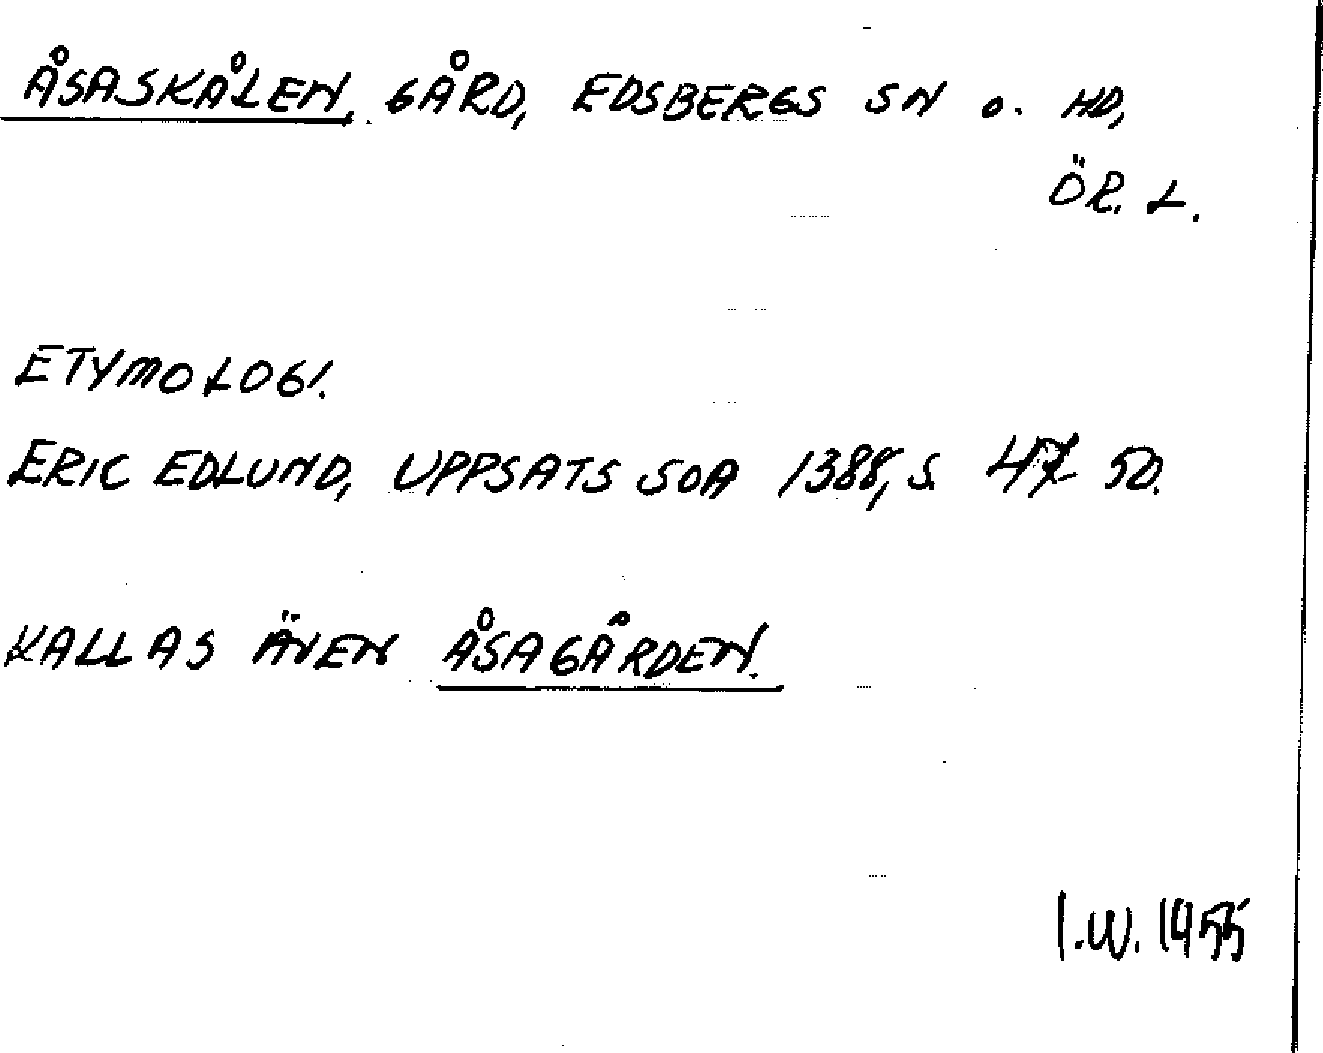 ÅSASKÅLEN, GÅRD, EDSBERGS SN o. HD,
ÖR. L.
ETYMOLOGI.
ERIC EDLUND, UPPSATS SOA 1388, S. 47-50.
KALLAS ÄVEN ÅSAGÅRDEN.
I.W. 1955